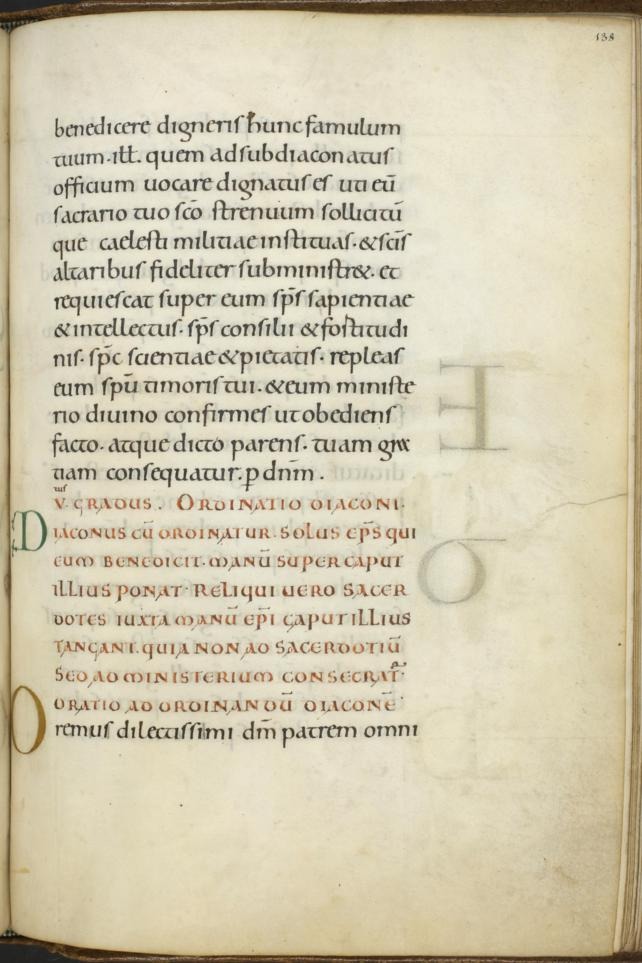 138
benedicere digneris hunc famulum
tuum · ill̅. quem ad subdiaconatus
officium uocare dignatus es uti eū
sacrario tuo sc̅o strenuum sollicitū
que caelesti militiae instituas · & sc̅is
altaribus fideliter subministr&. et
requiescat super eum sp̅s sapientiae
& intellectus · sp̅s consilii & fortitudi
nis · sp̅c scientiae & pietatis · repleas
eum sp̅u timoris tui · & eum ministe
rio diuino confirmes ut obediens
facto · atque dicto parens · tuam gra
tiam consequatur. p̲ dn̅m .
V. GRADUS . ORDINATIO DIACONI ·
DIACONUS CŪ ORDINATUR · SOLUS EP̅S QUI
EUM BENEDICIT · MANŪ SUPER CAPUT
ILLIUS PONAT · RELIQUI UERO SACER
DOTES IUXTA MANŪ EP̅I CAPUT ILLIUS
TANGANT. QUIA NON AD SACERDOTIŪ
SED AD MINISTERIUM CONSECRAT̅
ORATIO AD ORDINANDŪ DIACONĒ
Oremus dilectissimi dm̅ patrem omni